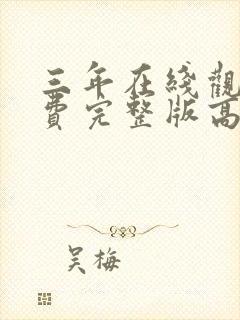 三年在綫觀
費完整版高
吴梅